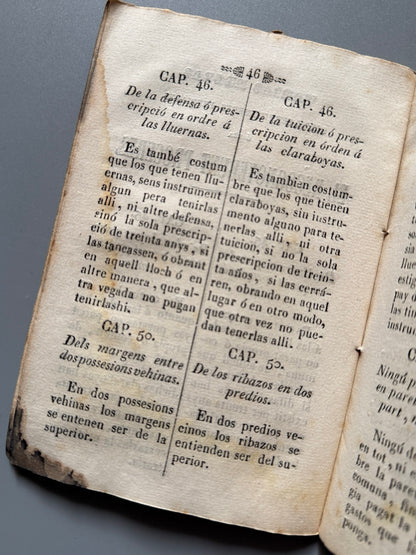 46
CAP. 46.
De la defensa ó pres-
cripció en ordre á
las lluernas.
Es també costum
que los que tenen llu-
ernas, sens instrument
algun pera tenirlas
alli, ni altre defensa,
sinó la sola prescrip-
ció de treinta anys, si
las tancassen, ó obrant
en aquell lloch ó en
altre manera, que al-
tra vegada no pugan
tenirlashi.
CAP. 50.
Dels margens entre
dos possesions vehinas.
En dos possesions
vehinas los margens
se entenen ser de la
superior.
CAP. 46.
De la tuicion ó pres-
cripcion en órden á
las claraboyas.
Es tambien costum-
bre que los que tienen
claraboyas, sin instru-
mento alguno para te-
nerlas alli, ni otra
tuicion, si no la sola
prescripcion de trein-
ta años, si las cerrá-
ren, obrando en aquel
lugar ó en otro modo,
que otra vez no pue-
dan tenerlas alli.
CAP. 50.
De los ribazos en dos
predios.
En dos predios ve-
cinos los ribazos se
entienden ser del su-
perior.
Ningú
en pare
part,
Ningú d
en tot, ni
bre la pare
comuna, fin
gia pagat la
gastós que
ponga.